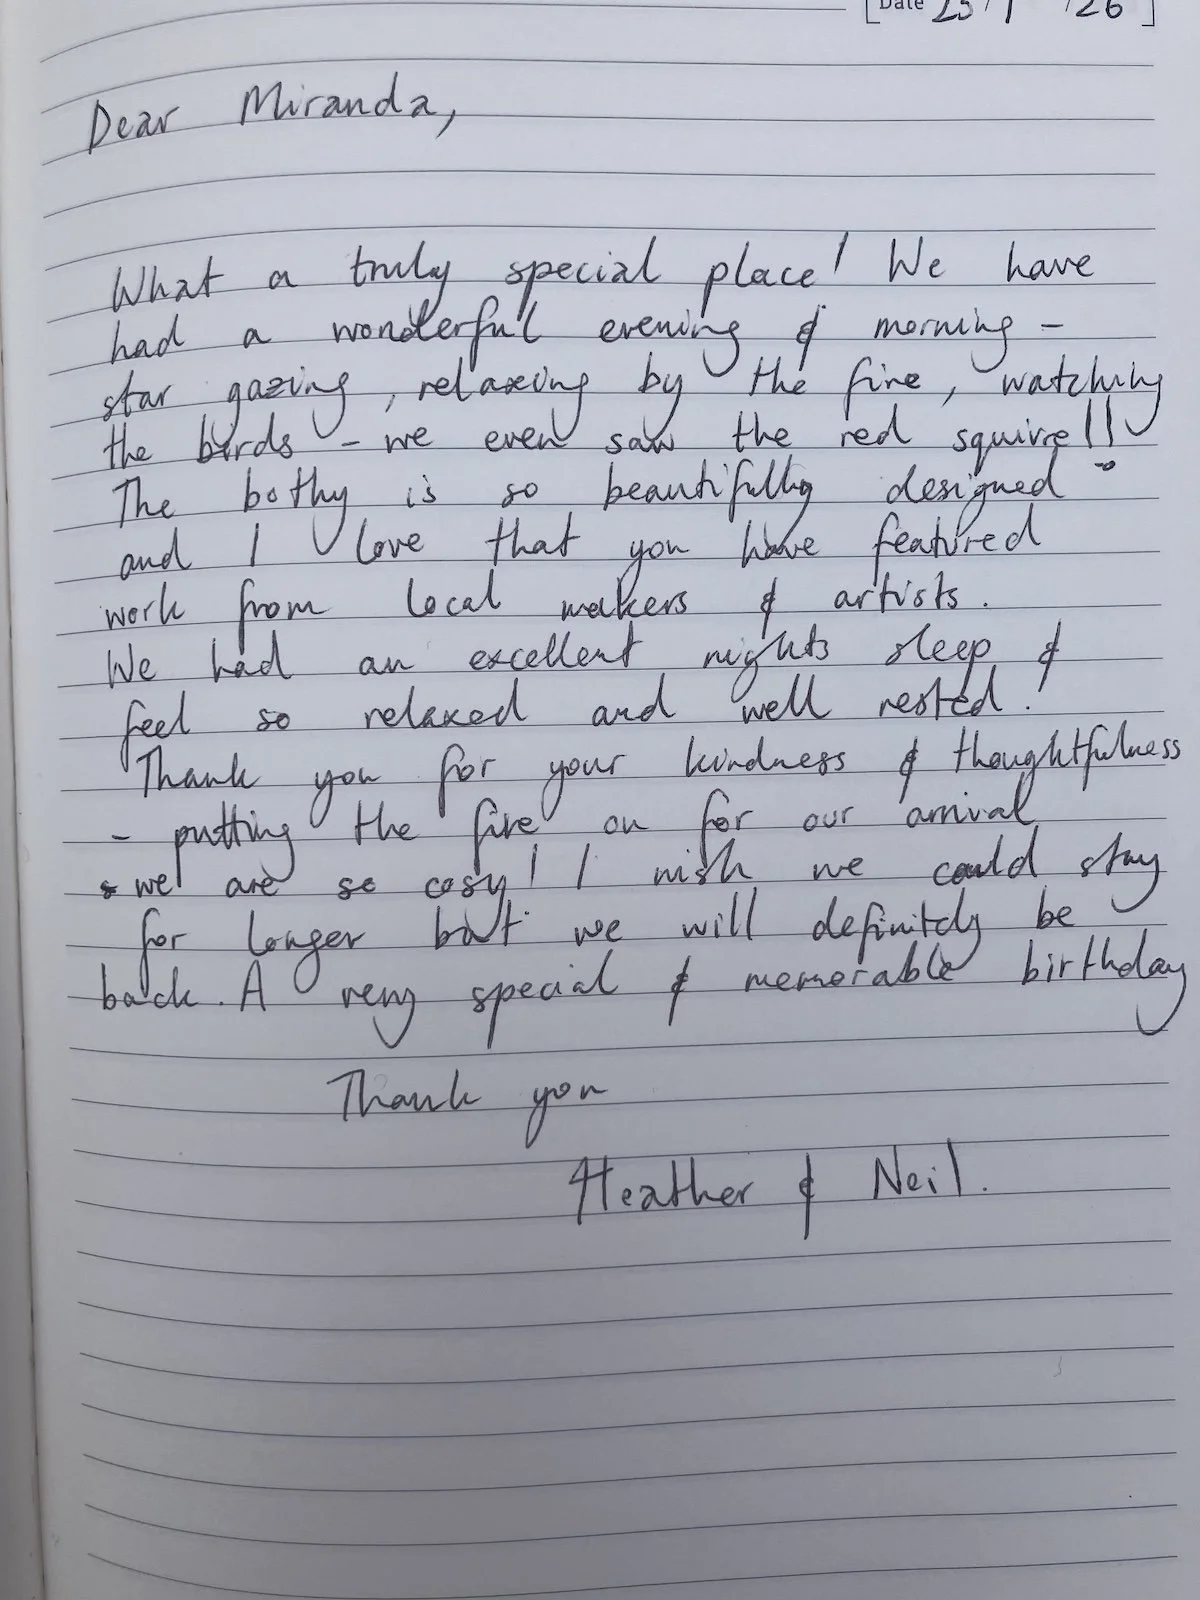 [Date 25/1/26]
Dear Miranda,
What a truly special place! We have
had a wonderful evening & morning -
star gazing, relaxing by the fire, watching
the birds - we even saw the red squirrel!
The bothy is so beautifully designed
and I love that you have featured
work from local makers & artists.
We had an excellent nights sleep &
feel so relaxed and well rested.
Thank you for your kindness & thoughtfulness
- putting the fire on for our arrival
we are so cosy! I wish we could stay
for longer but we will definitely be
back. A very special & memorable birthday
Thank you
Heather & Neil.